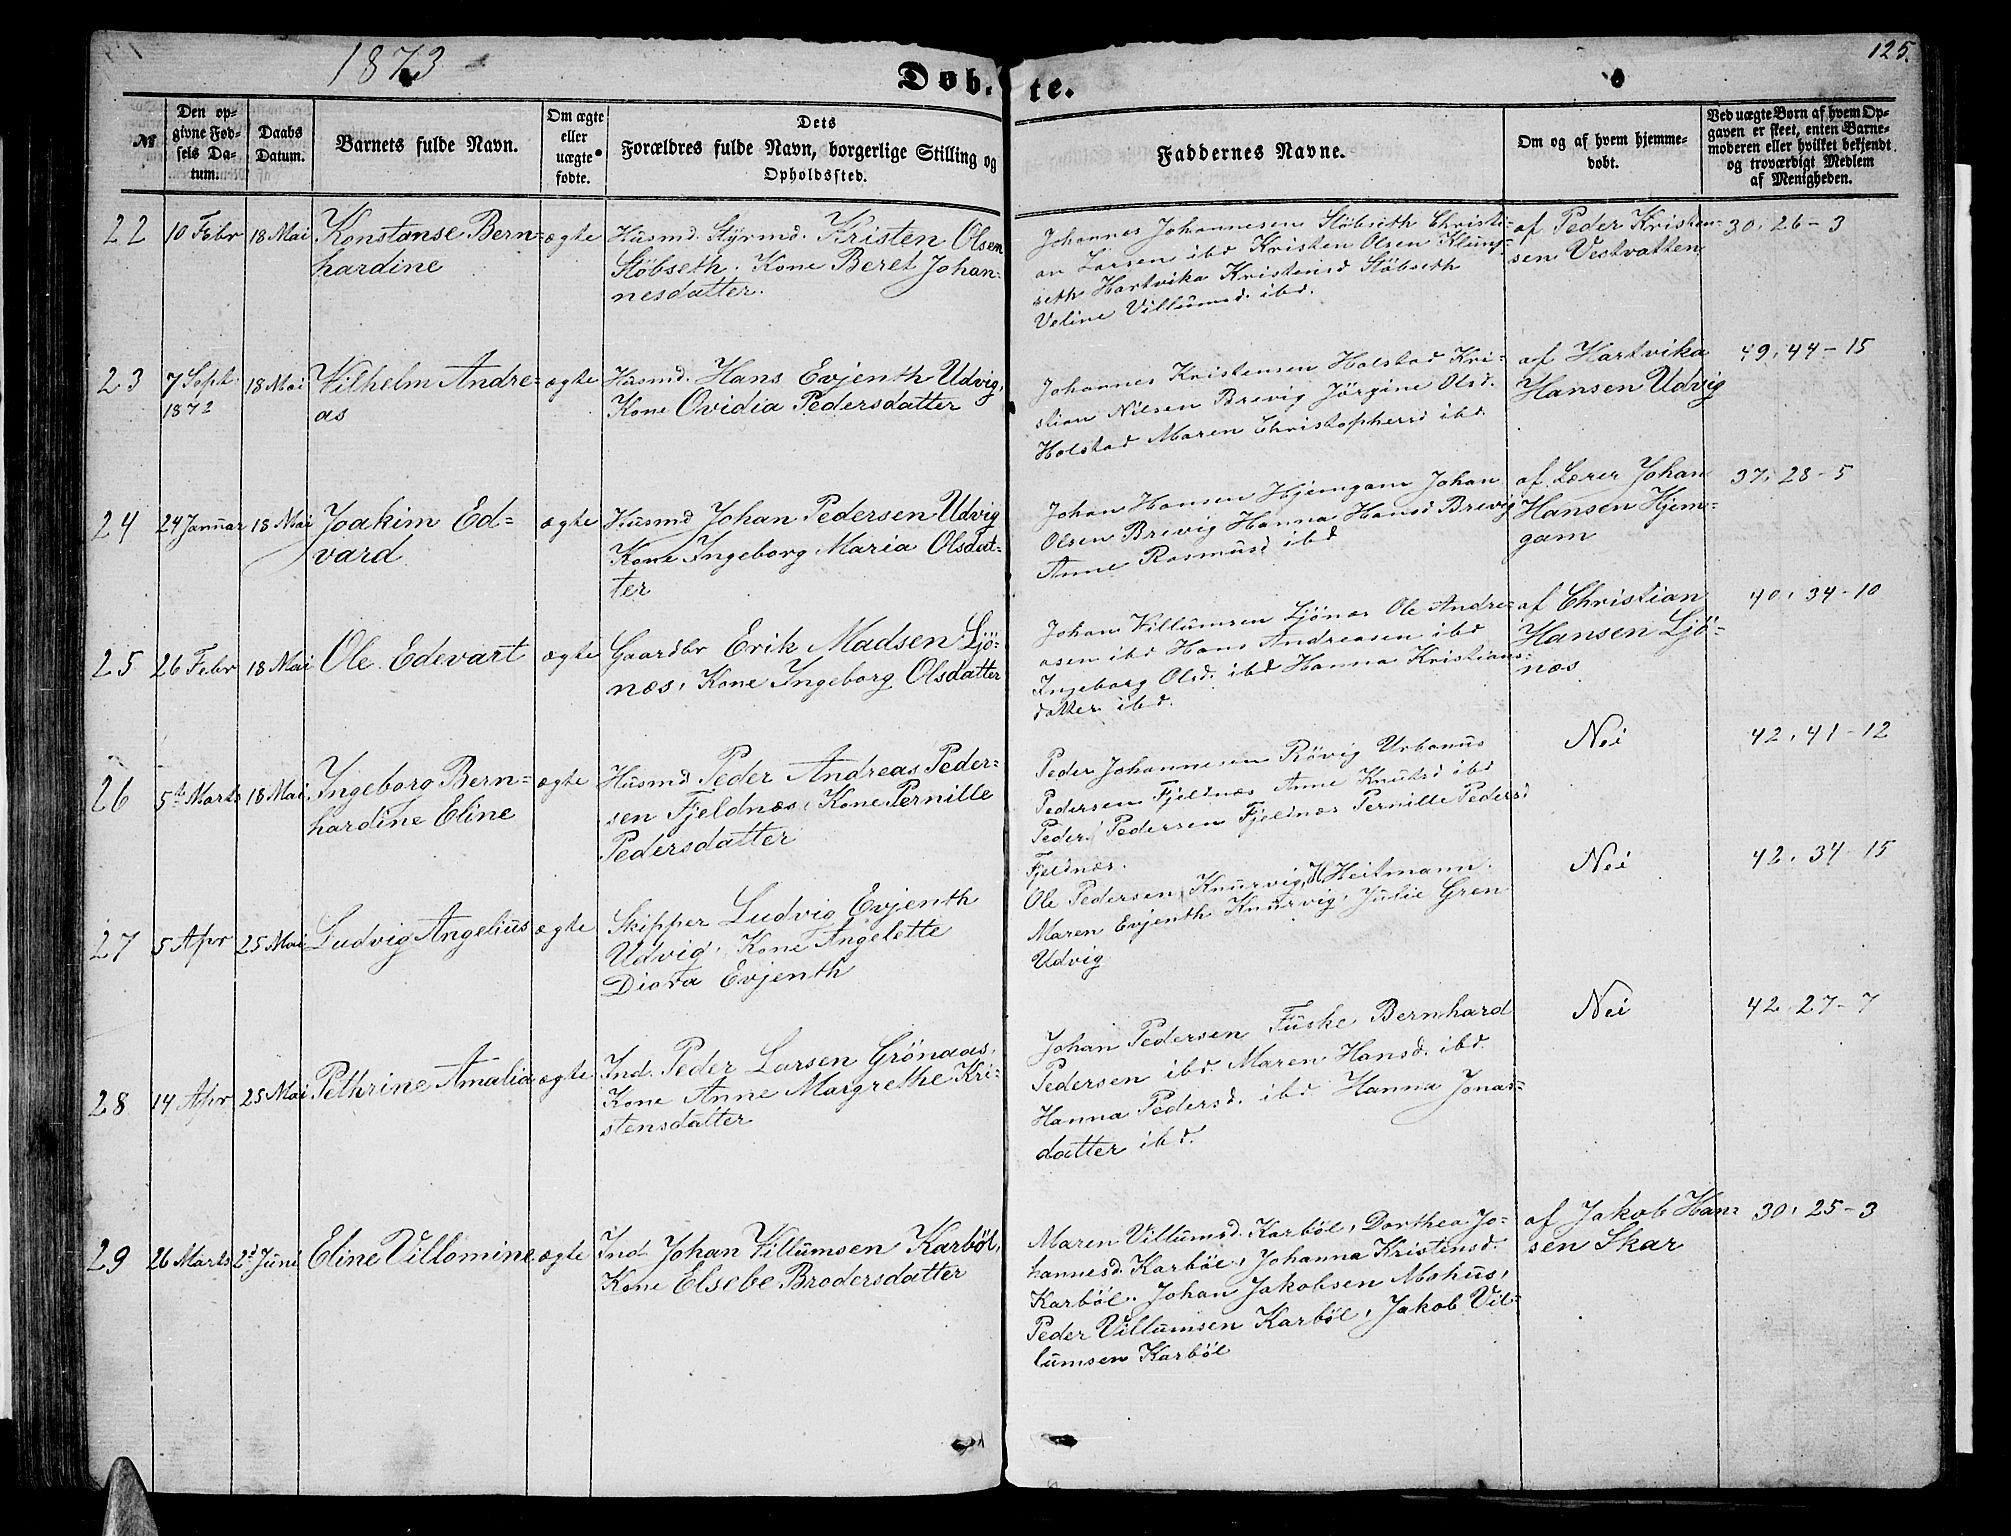 1873
125.
Døb-te.
№
Den op-
givne Fød-
sels Da-
tum.
Daabs
Datum.
Barnets fulde Navn.
Om ægte
eller
uægte
fødte.
Dets
Forældres fulde Navn, borgerlige Stilling og
Opholdssted.
Faddernes Navne.
Om og af hvem hjemme-
døbt.
Ved uægte Børn af hvem Op-
gaven er skeet, enten Barne-
moderen eller hvilket bekjendt
og troværdigt Medlem
af Menigheden.
22
10 Febr
18 Mai
Konstanse Bern-
hardine
ægte
Husmd. Styrmd. Kristen Olsen
Støbseth. Kone Beret Johan-
nesdatter.
Johannes Johannesen Støbseth Christi-
an Larsen ibd Kristen Olsen Klung-
seth Hartvika Kristensd Støbseth
Veline Villumsd. ibd.
af Peder Kristen-
sen Vestvatten
30. 26-3
23
7 Sept.
1872
18 Mai
Vilhelm Andre-
as
ægte
Husmd. Hans Evjenth Udvig,
Kone Ovidia Pedersdatter
Johannes Kristensen Holstad Kri-
stian Nilsen Brevig Jörgine Olsd.
Holstad Maren Christophersd ibd
af Hartvika
Hansen Udvig
49. 44-15
24
24 Januar
18 Mai
Joakim Ed-
vard
ægte
Husmd Johan Pedersen Udvig
Kone Ingeborg Maria Olsdat-
ter
Johan Hansen Hjemgam Johan
Olsen Brevig Hanna Hansd Brevig
Anne Rasmusd ibd
af Lærer Johan
Hansen Hjem-
gam
37. 28-5
25
26 Febr
18 Mai
Ole Edevart
ægte
Gaardbr Erik Madsen Ljö-
næs, Kone Ingeborg Olsdatter
Johan Villumsen Ljönæs Ole Andre-
asen ibd Hans Andreasen ibd
Ingeborg Olsd. ibd Hanna Kristians-
datter ibd.
af Christian
Hansen Ljö-
næs
40. 34-10
26
5te Marts
18 Mai
Ingeborg Bern-
hardine Eline
ægte
Husmd Peder Andreas Peder-
sen Fjeldnæs, Kone Pernille
Pedersdatter
Peder Johannesen Rövig Urbanus
Pedersen Fjeldnæs Anne Knutsd ibd
Peder Pedersen Fjeldnæs Pernille Pedersd
Fjeldnæs.
Nei
42. 41-12
27
5 Apr
25 Mai
Ludvig Angelius
ægte
Skipper Ludvig Evjenth
Udvig, Kone Angelette
Diora Evjenth
Ole Pedersen Knurvig, H Heitmann.
Maren Evjenth Knurvig, Julie Gren
Udvig
Nei
42. 34-15
28
14 Apr
25 Mai
Pethrine Amalia
ægte
Ind. Peder Larsen Grönaas,
Kone Anne Margrethe Kri-
stensdatter
Johan Pedersen Fuske Bernhard
Pedersen ibd. Maren Hansd. ibd.
Hanna Pedersd. ibd Hanna Jonas-
datter ibd.
Nei
42. 27-7
29
26 Marts
2d Juni
Eline Villomine
ægte
Ind Johan Villumsen Karböl,
Kone Elsebe Brodersdatter
Maren Villumsd. Karböl, Dorthea Jo-
hannesd. Karböl, Johanna Kristensd.
Karböl. Johan Jakobsen Mohus,
Peder Villumsen Karböl, Jakob Vil-
lumsen Karböl
af Jakob Han-
sen Skar
30. 25-3